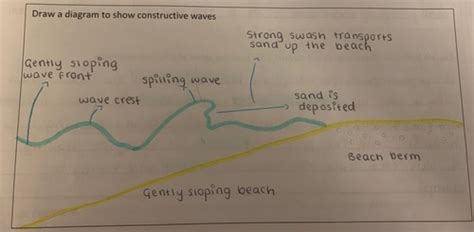 Draw a diagram to show constructive waves
Strong swash transports
sand up the beach
Gently sloping
wave front
spilling wave
wave crest
sand is
deposited
Beach berm
Gently sloping beach